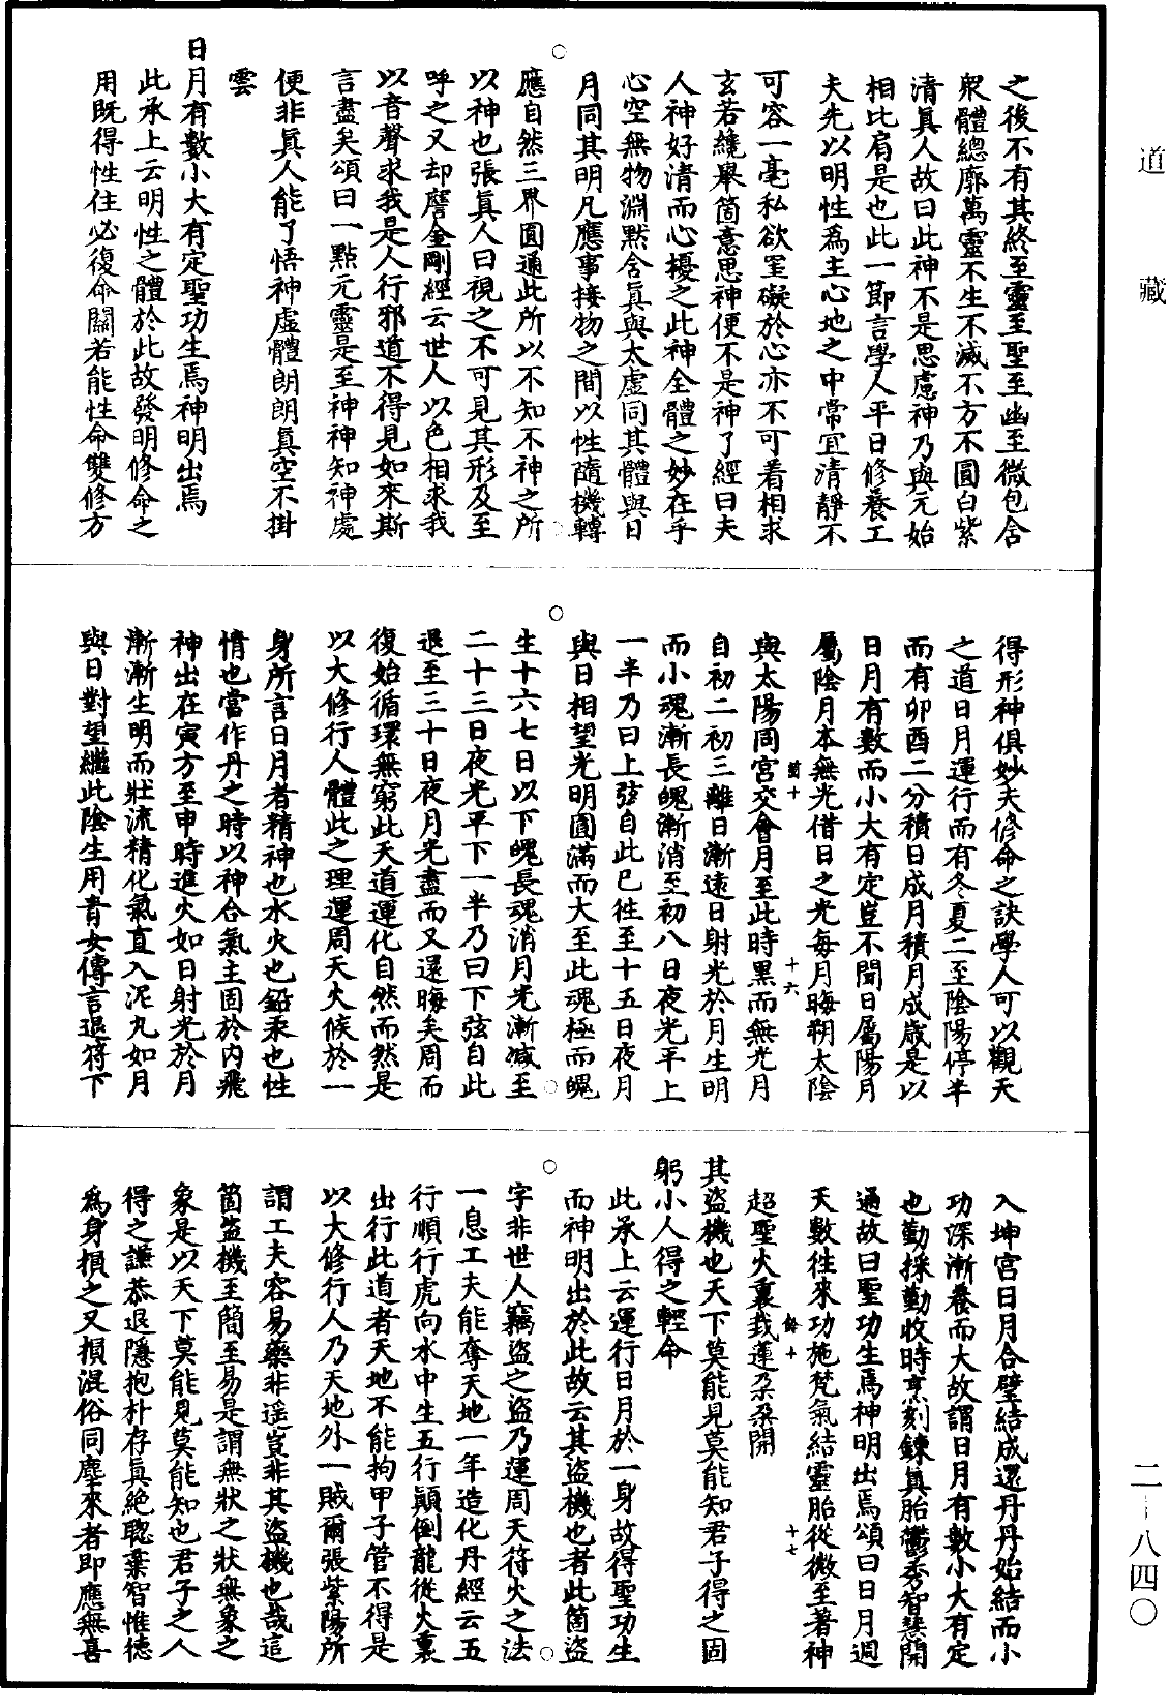 道藏
二—八四〇
之後不有其終至靈至聖至幽至微包含
衆體總廓萬靈不生不滅不方不圓白紫
清眞人故曰此神不是思慮神乃與元始
相比肩是也此一節言學人平日修養工
夫先以明性爲主心地之中常宜清靜不
可容一毫私欲罣礙於心亦不可着相求
玄若纔舉箇意思神便不是神了經曰夫
人神好清而心擾之此神全體之妙在乎
心空無物淵默含眞與太虛同其體與日
月同其明凡應事接物之間以性隨機轉
應自然三界圓通此所以不知不神之所
以神也張眞人曰視之不可見其形及至
呼之又却譍金剛經云世人以色相求我
以音聲求我是人行邪道不得見如來斯
言盡矣頌曰一點元靈是至神神知神處
便非眞人能了悟神虛體朗朗眞空不掛
雲
日月有數小大有定聖功生焉神明出焉
此承上云明性之體於此故發明修命之
用既得性住必復命關若能性命雙修方
得形神俱妙夫修命之訣學人可以觀天
之道日月運行而有冬夏二至陰陽停半
而有卯酉二分積日成月積月成歲是以
日月有數而小大有定豈不聞日屬陽月
屬陰月本無光借日之光每月晦朔太陰
十六
與太陽同宮交會月至此時黑而無光月
自初二初三離日漸遠日射光於月生明
而小魂漸長魄漸消至初八日夜光平上
一半乃曰上弦自此已往至十五日夜月
與日相望光明圓滿而大至此魂極而魄
生十六七日以下魄長魂消月光漸減至
二十三日夜光平下一半乃曰下弦自此
退至三十日夜月光盡而又還晦矣周而
復始循環無窮此天道運化自然而然是
以大修行人體此之理運周天火候於一
身所言日月者精神也水火也鉛汞也性
情也當作丹之時以神合氣主固於內飛
神出在寅方至申時進火如日射光於月
漸漸生明而壯流精化氣直入泥丸如月
與日對望繼此陰生用青女傳言退符下
入坤宮日月合璧結成還丹丹始結而小
功深漸養而大故謂日月有數小大有定
也勤採勤收時烹刻鍊眞胎鬱秀智慧開
通故曰聖功生焉神明出焉頌曰日月週
天數往來功施梵氣結靈胎從微至著神
十七
超聖火裏栽蓮朵朵開
其盜機也天下莫能見莫能知君子得之固
躬小人得之輕命
此承上云運行日月於一身故得聖功生
而神明出於此故云其盜機也者此箇盜
字非世人竊盜之盜乃運周天符火之法
一息工夫能奪天地一年造化丹經云五
行順行虎向水中生五行顚倒龍從火裏
出行此道者天地不能拘甲子管不得是
以大修行人乃天地外一賊爾張紫陽所
謂工夫容易藥非遥豈非其盜機也哉這
箇盜機至簡至易是謂無狀之狀無象之
象是以天下莫能見莫能知也君子之人
得之謙恭退隱抱朴存眞絕聰棄智惟德
爲身損之又損混俗同塵來者即應無喜